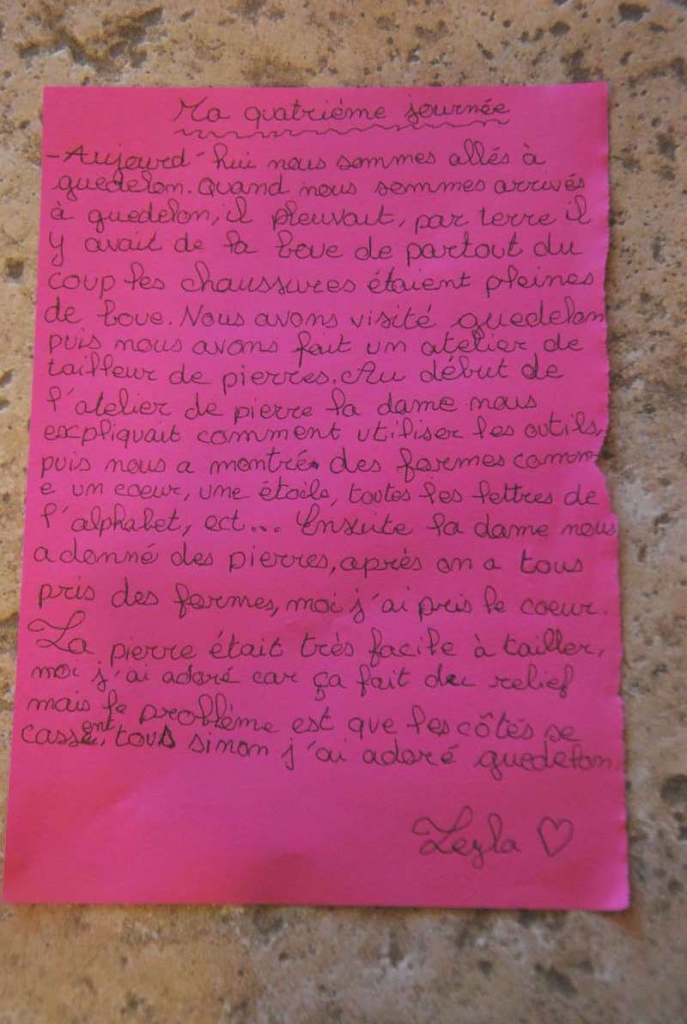 Ma quatrième journée
- Aujourd'hui nous sommes allés à
guedelon. Quand nous sommes arrivés
à guedelon, il pleuvait, par terre il
y avait de la boue de partout du
coup les chaussures étaient pleines
de boue. Nous avons visité guedelon
puis nous avons fait un atelier de
tailleur de pierres. Au début de
l'atelier de pierre la dame nous
expliquait comment utiliser les outils,
puis nous a montré des formes comm
e un coeur, une étoile, toutes les lettres de
l'alphabet, ect... Ensuite la dame nous
a donné des pierres, après on a tous
pris des formes, moi j'ai pris le coeur.
La pierre était très facile à tailler,
moi j'ai adoré car ça fait du relief
mais le problème est que les côtés se
cassent, tous sinon j'ai adoré guedelon.
Leyla ♡